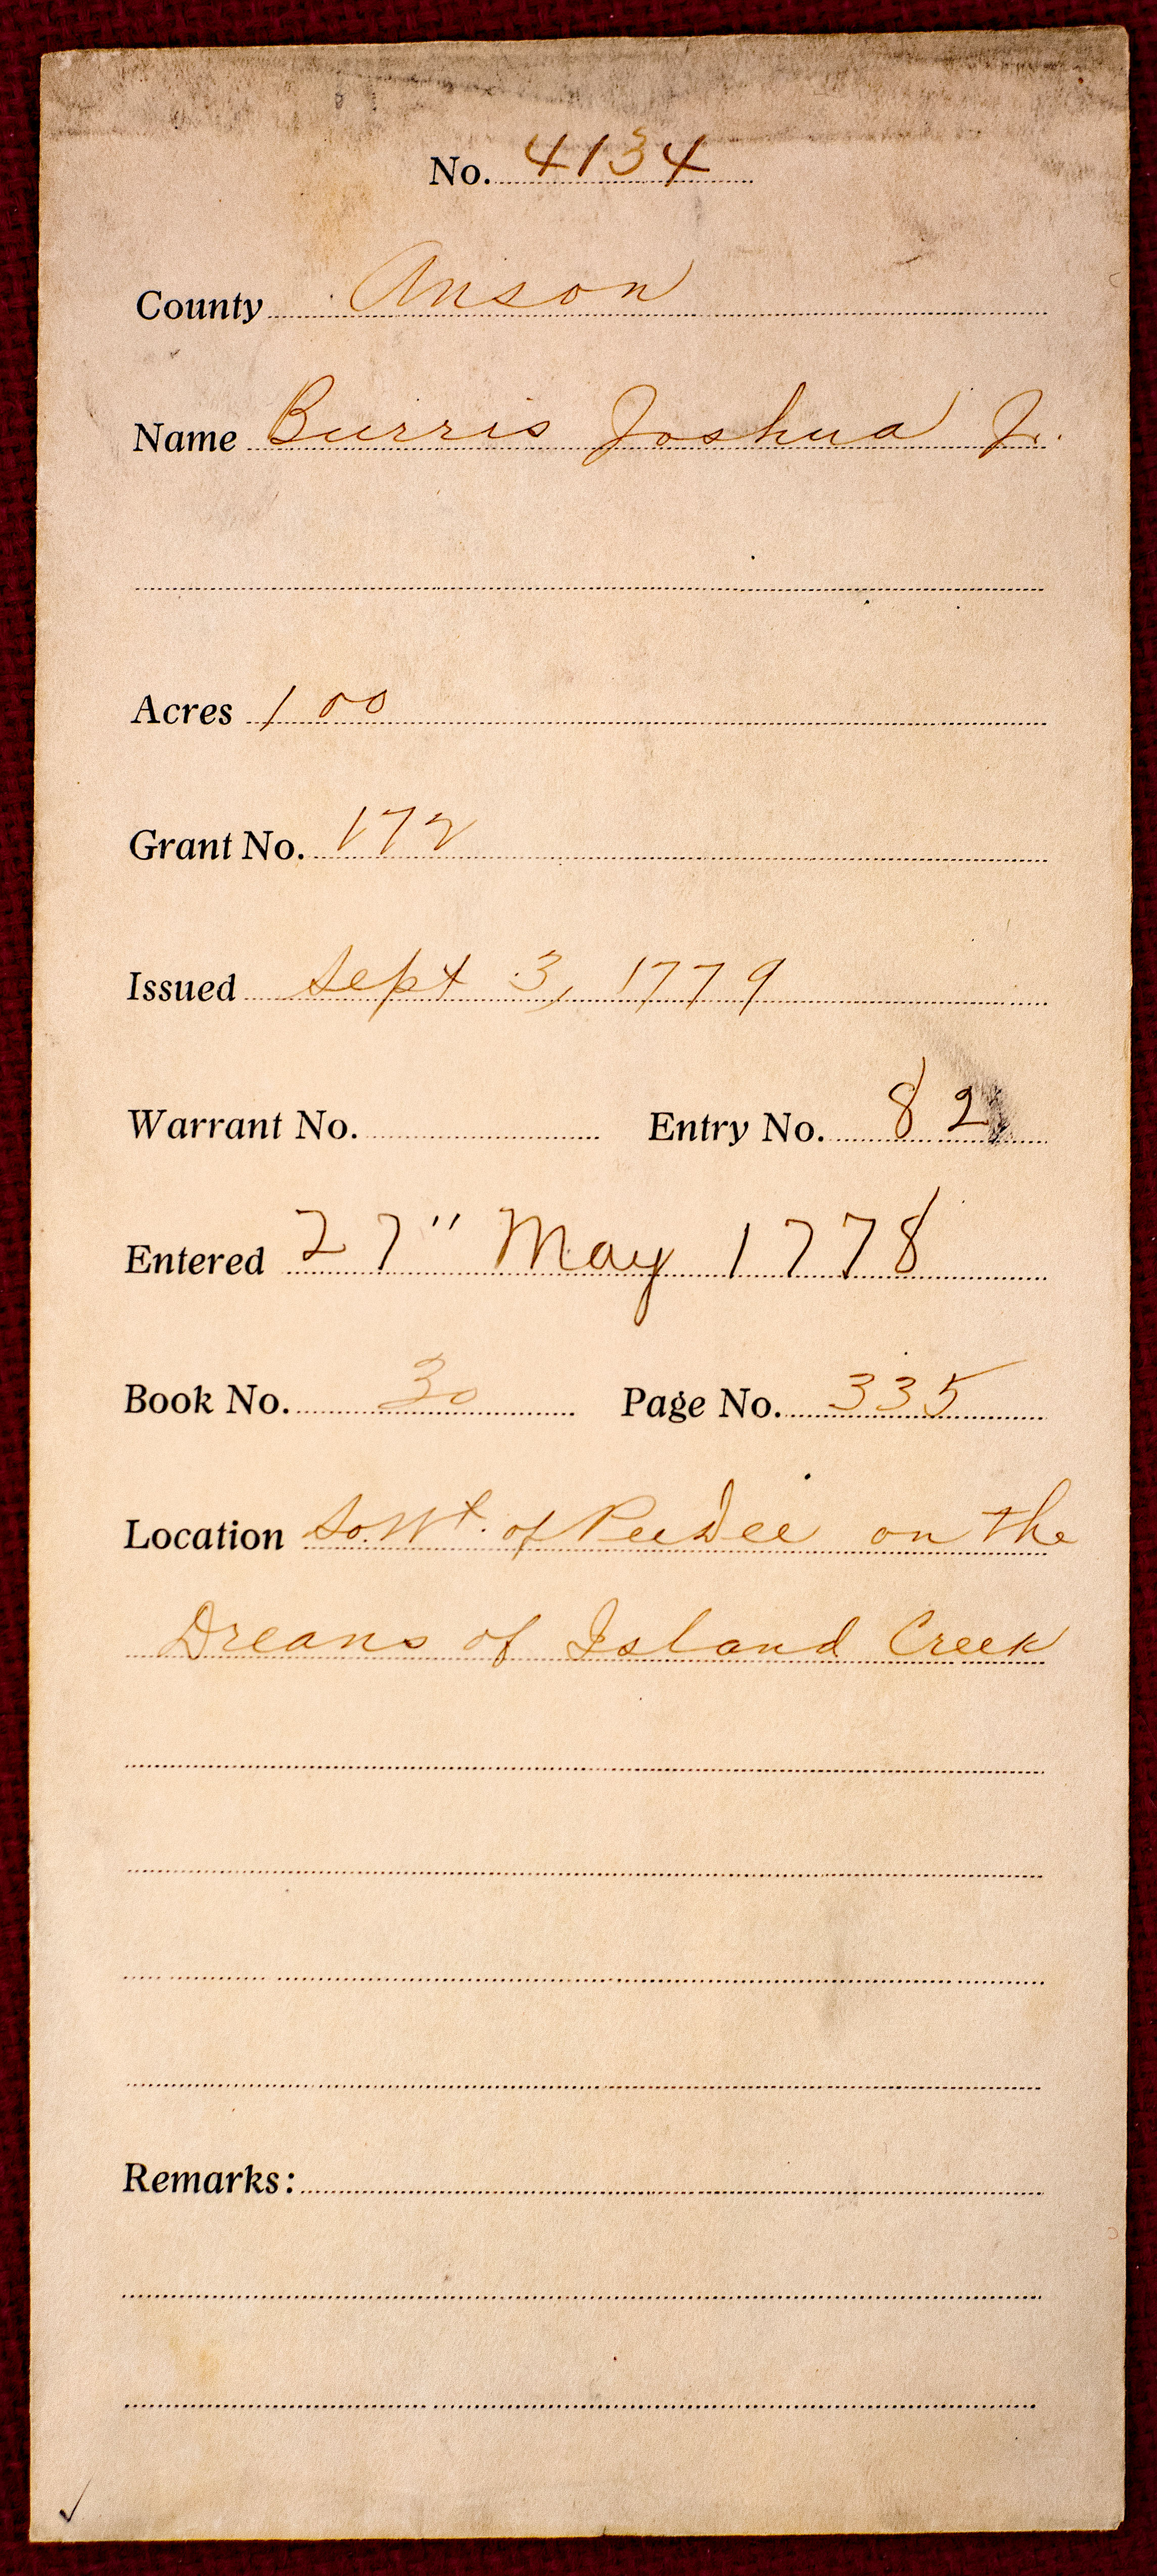 No. 4134
County Anson
Name Burris Joshua Jr.
Acres 100
Grant No. 172
Issued Sept 3, 1779
Warrant No. Entry No. 82
Entered 27" May 1778
Book No. 30 Page No. 335
Location So. Wt. of PeeDee on the
Dreans of Island Creek
Remarks: